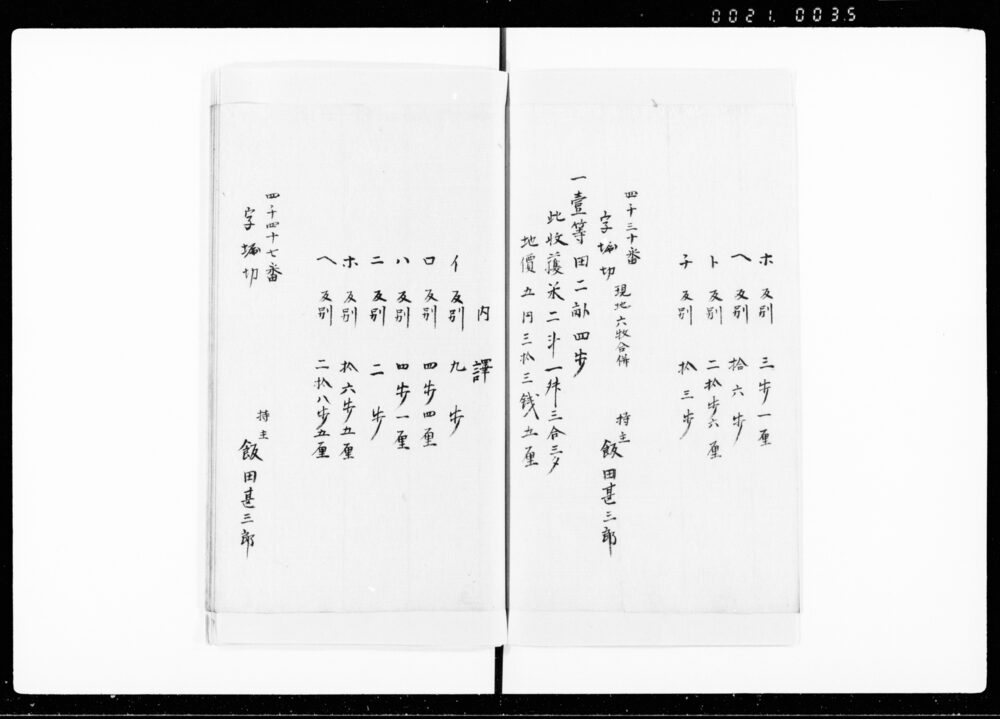 0021 0035
ホ 反別 三歩一厘
ヘ 反別 拾六歩
ト 反別 二拾歩六厘
チ 反別 拾三歩
四千三十番
字堀切 現地六牧合併 持主 飯田甚三郎
一壹等田二畝四歩
此收蕷米二斗一舛三合三夕
地價五円三拾三銭五厘
内譯
イ 反別 九歩
ロ 反別 四歩四厘
ハ 反別 四歩一厘
ニ 反別 二歩
ホ 反別 拾六歩五厘
ヘ 反別 二拾八歩五厘
四千四十七番
字堀切 持主 飯田甚三郎